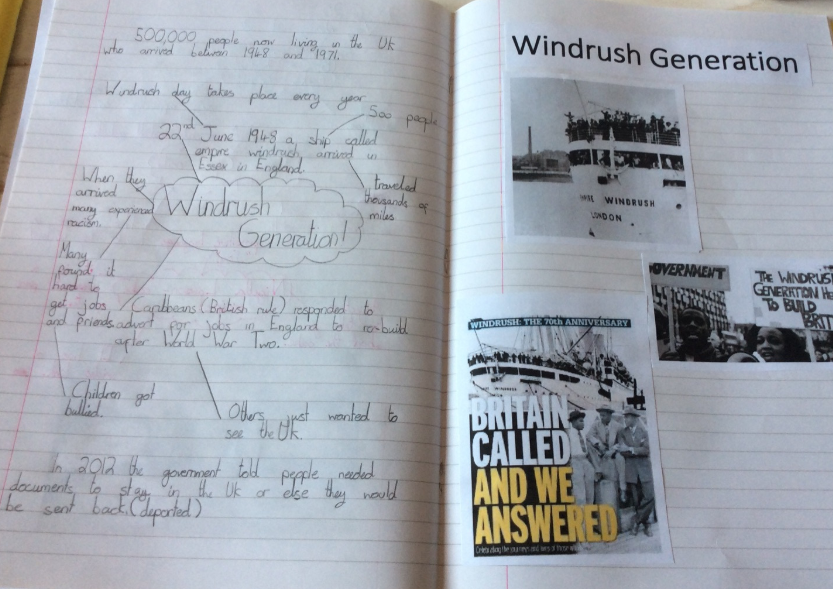 500,000 people now living in the Uk
who arrived between 1948 and 1971.
Windrush day takes place every year
500 people
22nd June 1948 a ship called
empire windrush arrived in
Essex in England.
traveled
thousands of
miles
When they
arrived
many experienced
racism.
Windrush
Generation!
Many
found it
hard to
get jobs
and friends
Caribbeans (British rule) responded to
advert for jobs in England to re-build
after World War Two.
Children got
bullied.
Others just wanted to
see the Uk.
In 2012 the government told people needed
documents to stay in the Uk or else they would
be sent back. (deported)
Windrush Generation
WINDRUSH
LONDON
OVERNMENT
THE WINDRUS
GENERATION HE
TO BUILD
BRIT
WINDRUSH: THE 70th ANNIVERSARY
BRITAIN
CALLED
AND WE
ANSWERED
Celebrating the journeys and lives of those